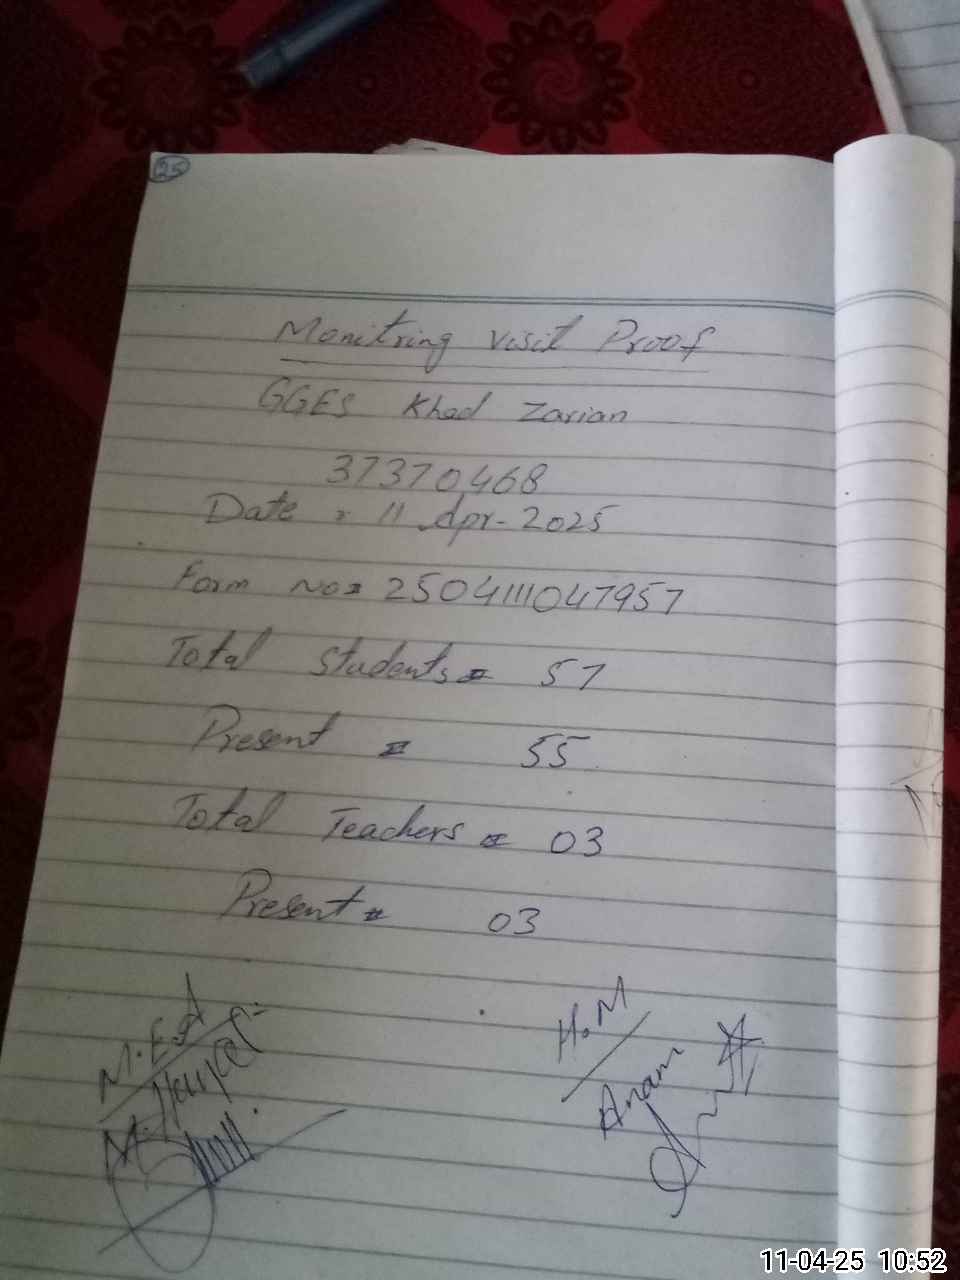 25
Monitring Visit Proof
GGES Khad Zarian
37370468
Date : 11 Apr-2025
Form No = 2504111047957
Total Students = 57
Present = 55
Total Teachers = 03
Present = 03
M.EA
H.M
Anam
11-04-25 10:52